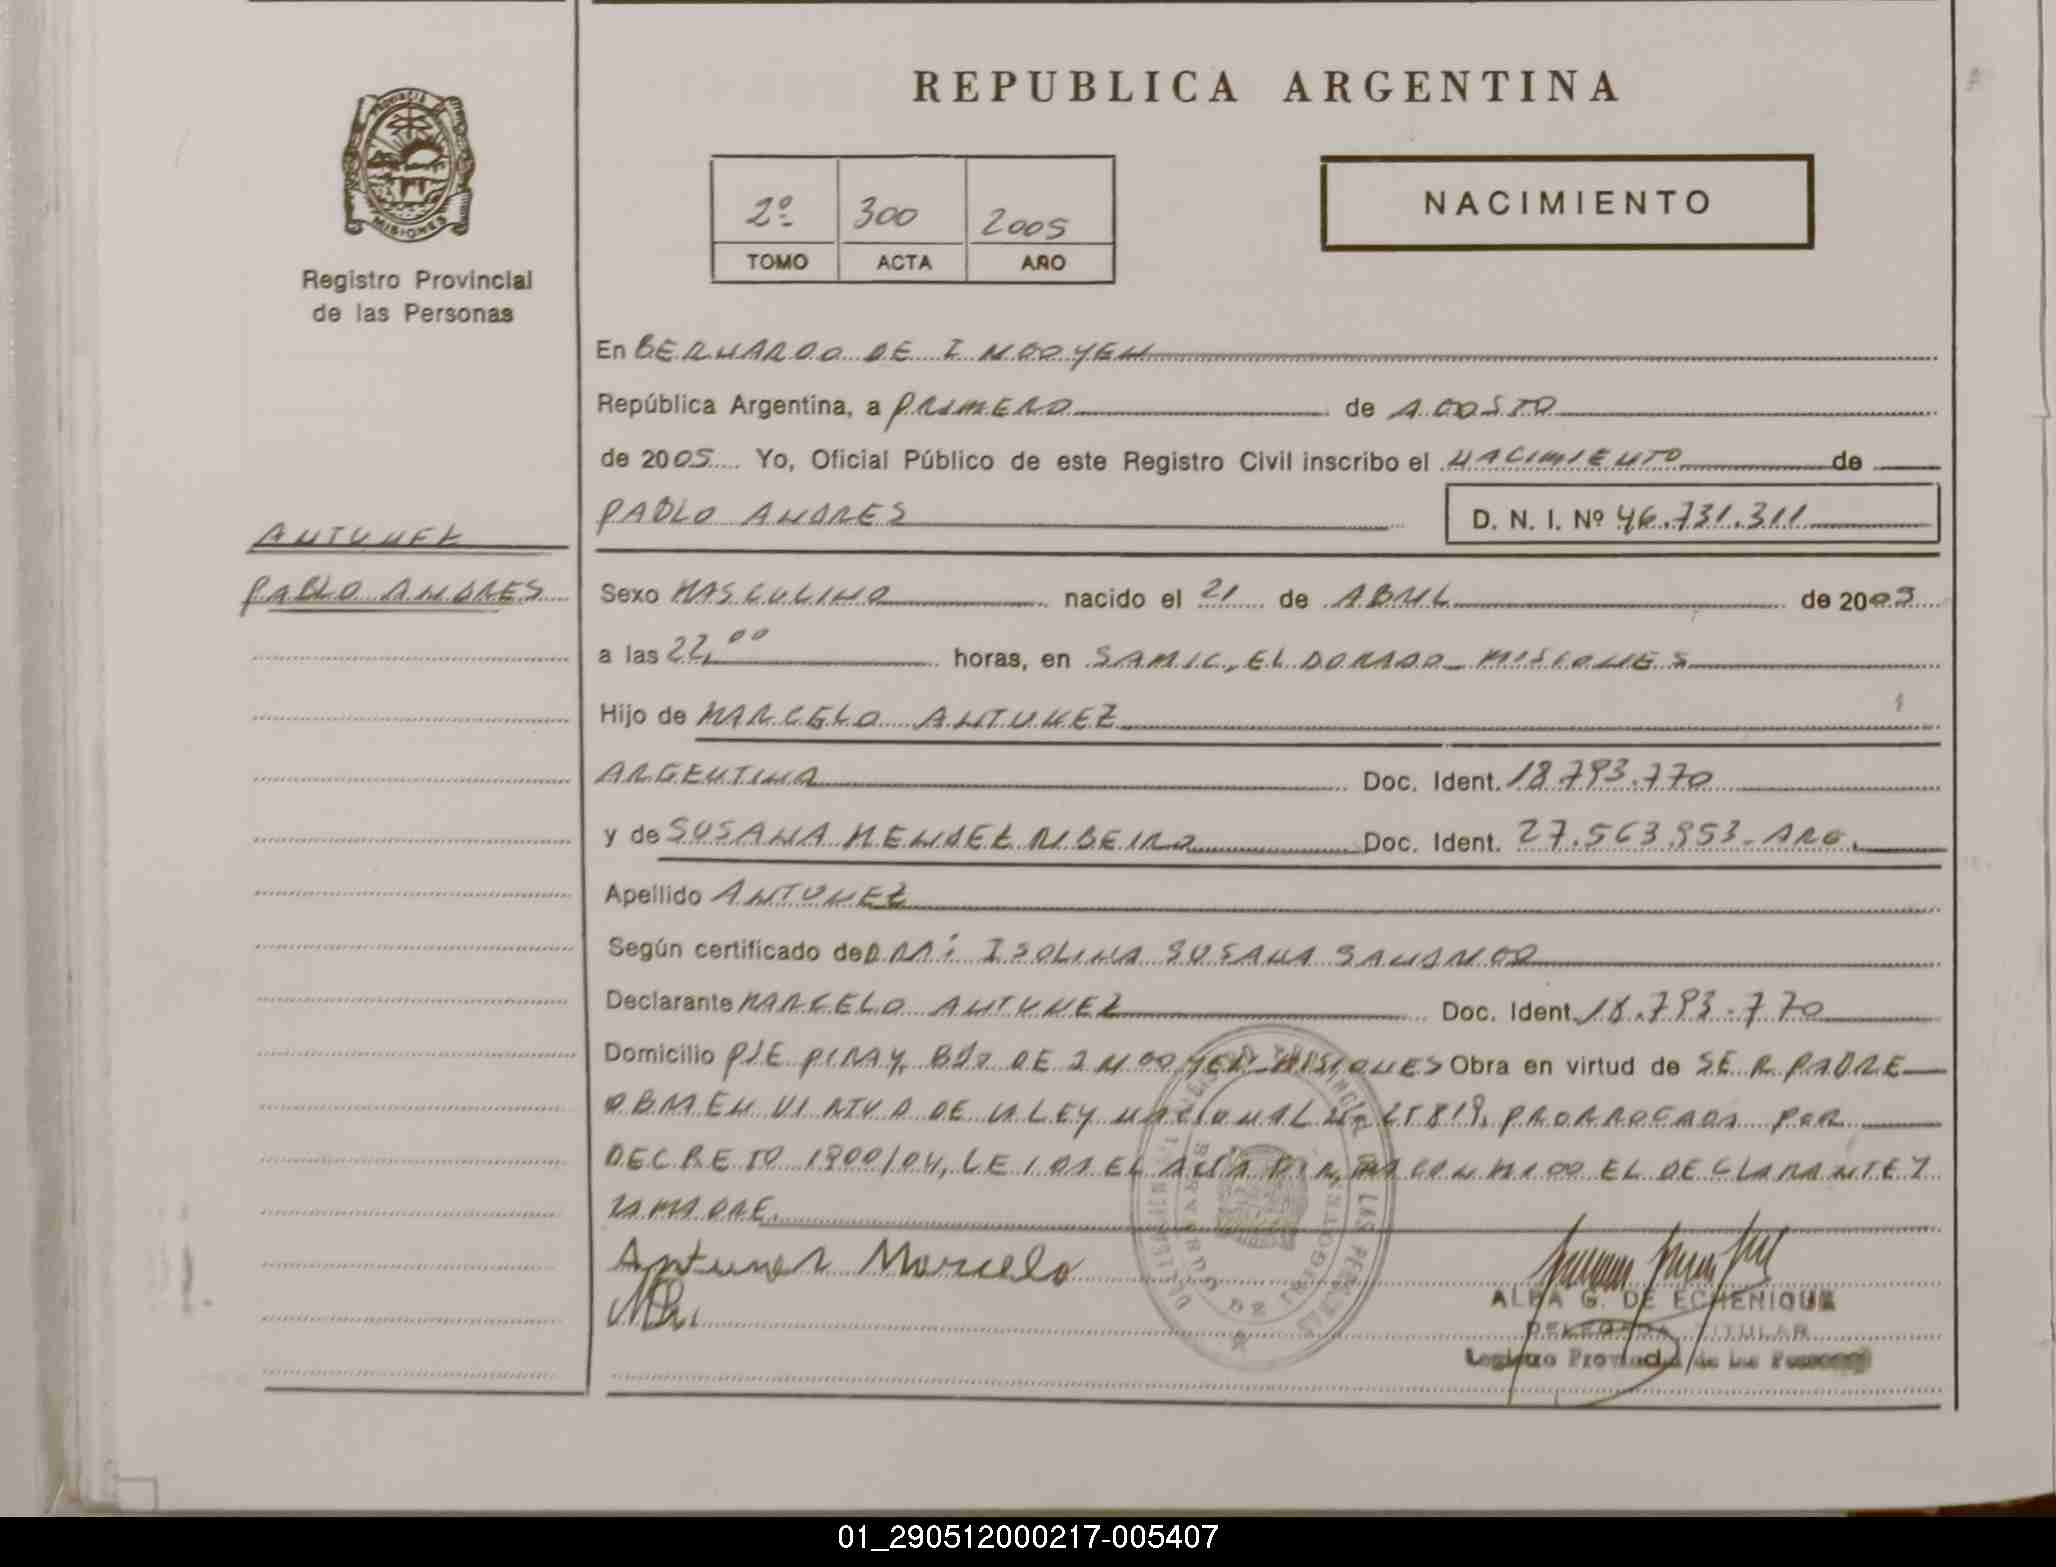 REPUBLICA ARGENTINA
PROVINCIA
MISIONES
Registro Provincial
de las Personas
2º 300 2005
TOMO ACTA AÑO
NACIMIENTO
En BERNARDO DE IRIGOYEN
República Argentina, a PRIMERO de AGOSTO
de 2005 Yo, Oficial Público de este Registro Civil inscribo el NACIMIENTO de
PABLO ANDRES D. N. I. Nº 46.731.311
ANTUNEZ
PABLO ANDRES
Sexo MASCULINO nacido el 21 de ABRIL de 2005
a las 22,00 horas, en SAMIC, ELDORADO - MISIONES
Hijo de MARCELO ANTUNEZ
ARGENTINA Doc. Ident. 18.793.770
y de SUSANA MENDEZ RIBEIRO Doc. Ident. 27.563.953 - ARG.
Apellido ANTUNEZ
Según certificado de DRA: ISOLINA SUSANA
Declarante MARCELO ANTUNEZ Doc. Ident. 18.793.770
Domicilio PJE PIRAY, BDO DE IRIGOYEN - MISIONES Obra en virtud de SER PADRE
OBRA EN VIRTUD DE LA LEY NACIONAL Nº 25819, PRORROGADA POR
DECRETO 1900/04, LEIDA EL ACTA FIRMA CONMIGO EL DECLARANTE Y
LA MADRE.
Antunez Marcelo
ALBA G. DE ECHENIQUE
DELEGADA TITULAR
Registro Provincial de las Personas
01_290512000217-005407